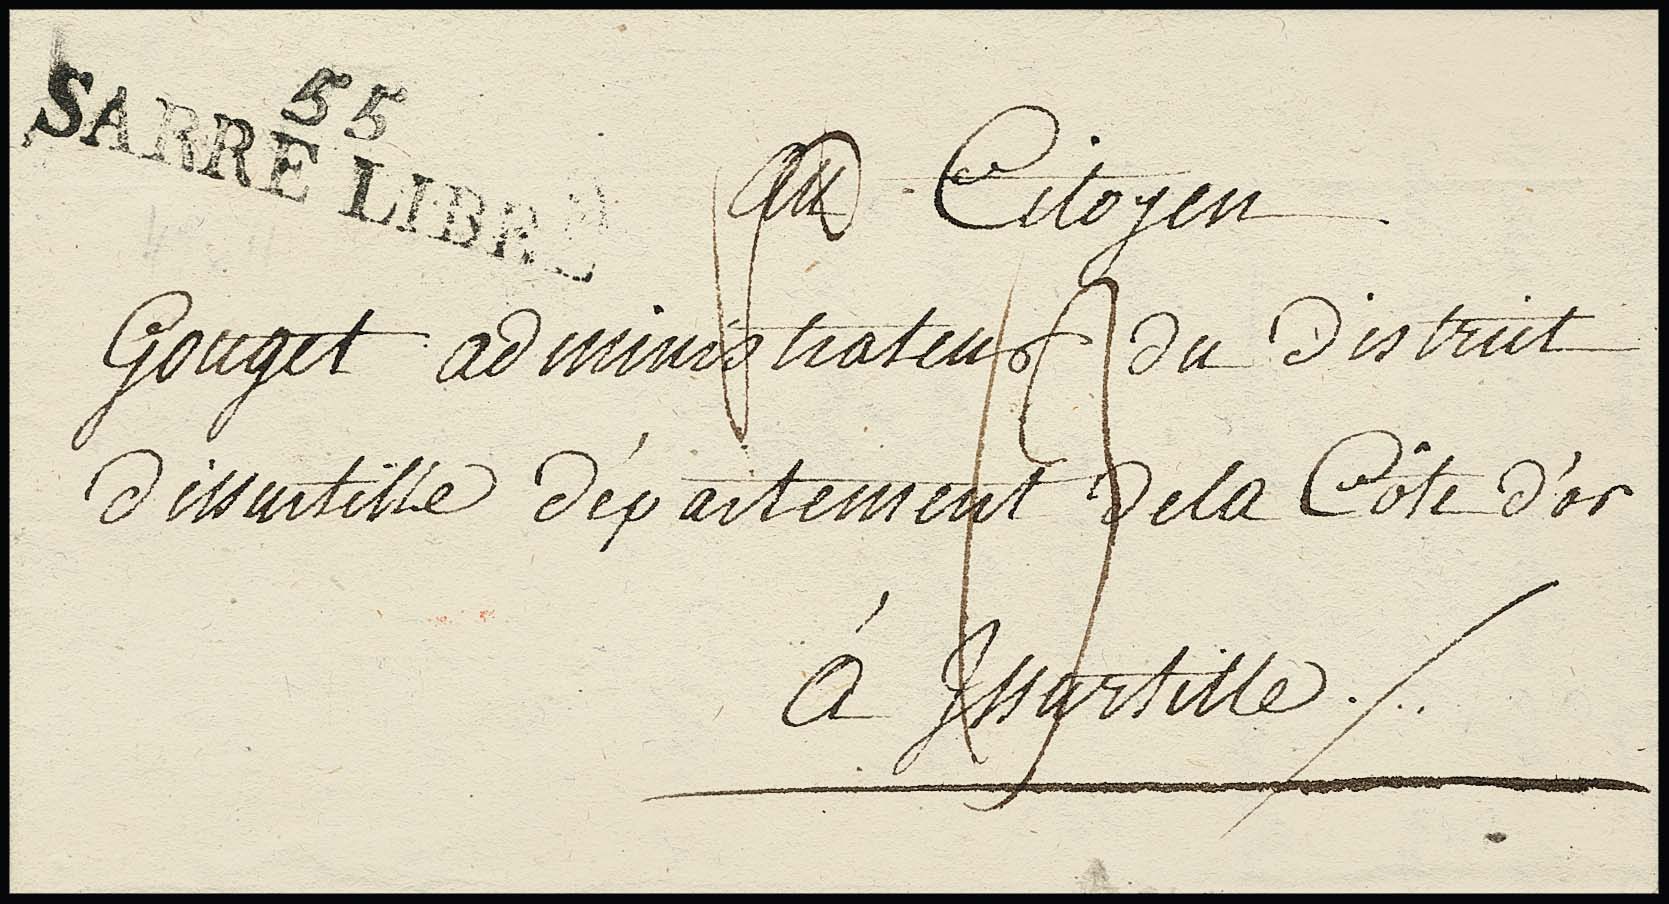 55
SARRE LIBRE
au Citoyen
Gouget administrateur du District
Dissurtille département dela Côte d'or
á Issurtille